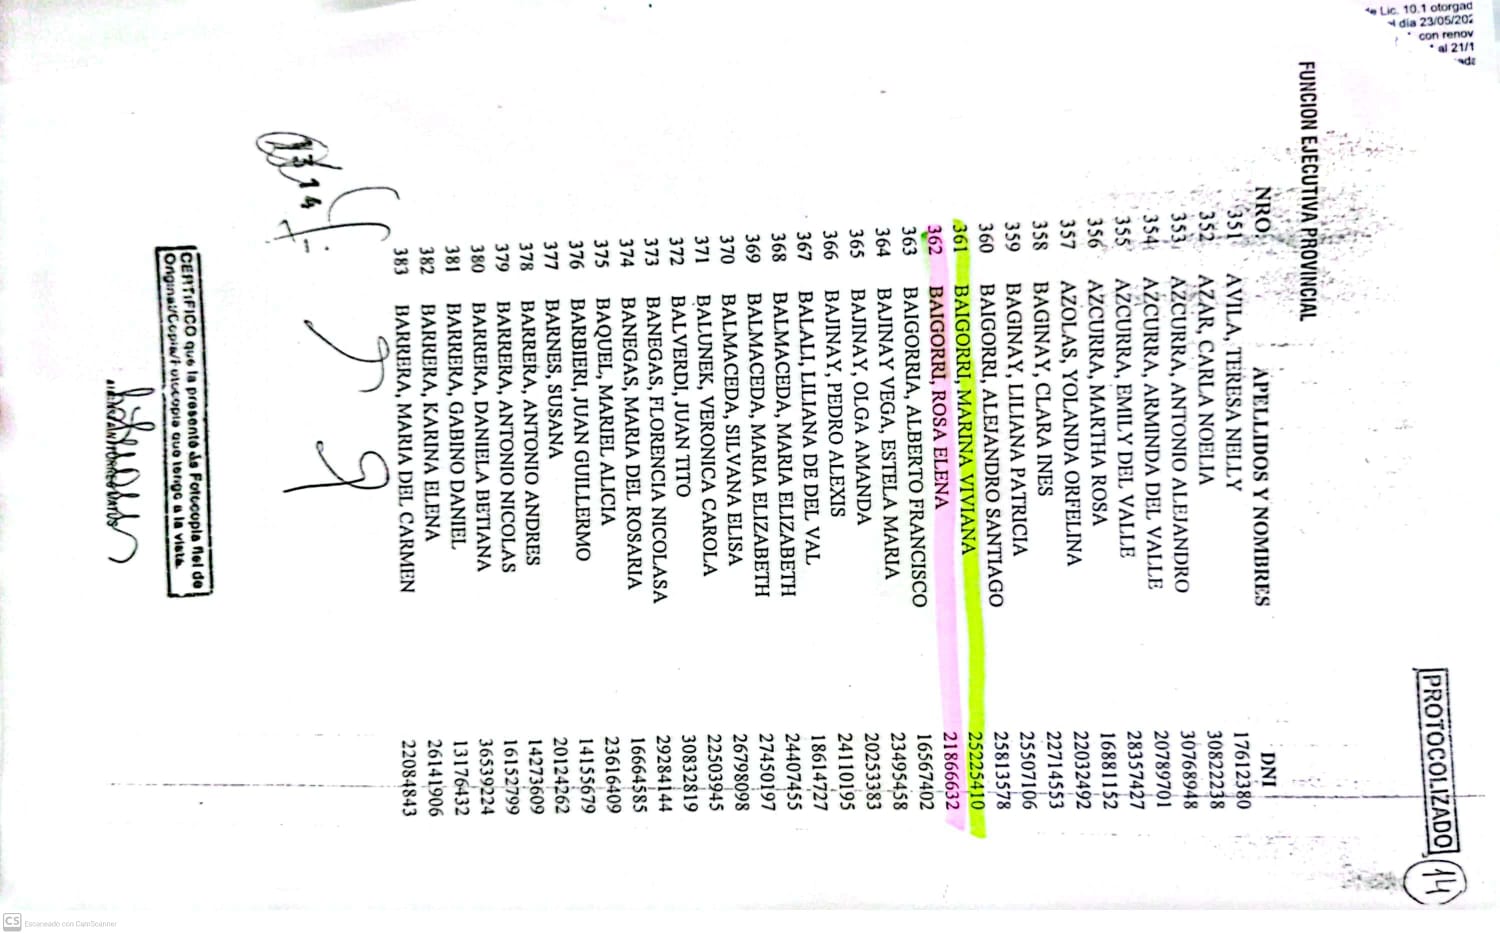 Lic. 10.1 otorgad
dia 23/05/202
con renov
al 21/1
PROTOCOLIZADO
14
FUNCION EJECUTIVA PROVINCIAL
NRO. APELLIDOS Y NOMBRES DNI
351 AVILA, TERESA NELLY 17612380
352 AZAR, CARLA NOELIA 30822238
353 AZCURRA, ANTONIO ALEJANDRO 30768948
354 AZCURRA, ARMINDA DEL VALLE 20789701
355 AZCURRA, EMILY DEL VALLE 28357427
356 AZCURRA, MARTHA ROSA 16881152
357 AZOLAS, YOLANDA ORFELINA 22032492
358 BAGINAY, CLARA INES 22714553
359 BAGINAY, LILIANA PATRICIA 25507106
360 BAIGORRI, ALEJANDRO SANTIAGO 25813578
361 BAIGORRI, MARINA VIVIANA 25225410
362 BAIGORRI, ROSA ELENA 21866632
363 BAIGORRIA, ALBERTO FRANCISCO 16567402
364 BAJINAY VEGA, ESTELA MARIA 23495458
365 BAJINAY, OLGA AMANDA 20253383
366 BAJINAY, PEDRO ALEXIS 24110195
367 BALALI, LILIANA DE DEL VAL 18614727
368 BALMACEDA, MARIA ELIZABETH 24407455
369 BALMACEDA, MARIA ELIZABETH 27450197
370 BALMACEDA, SILVANA ELISA 26798098
371 BALUNEK, VERONICA CAROLA 22503945
372 BALVERDI, JUAN TITO 30832819
373 BANEGAS, FLORENCIA NICOLASA 29284144
374 BANEGAS, MARIA DEL ROSARIA 16664585
375 BAQUEL, MARIEL ALICIA 23616409
376 BARBIERI, JUAN GUILLERMO 14155679
377 BARNES, SUSANA 20124262
378 BARRERA, ANTONIO ANDRES 14273609
379 BARRERA, ANTONIO NICOLAS 16152799
380 BARRERA, DANIELA BETIANA 36539224
381 BARRERA, GABINO DANIEL 13176432
382 BARRERA, KARINA ELENA 26141906
383 BARRERA, MARIA DEL CARMEN 22084843
CERTIFICO que la presente es Fotocopia fiel de
Original/Copia/Fotocopia que tengo a la vista.
CS Escaneado con CamScanner